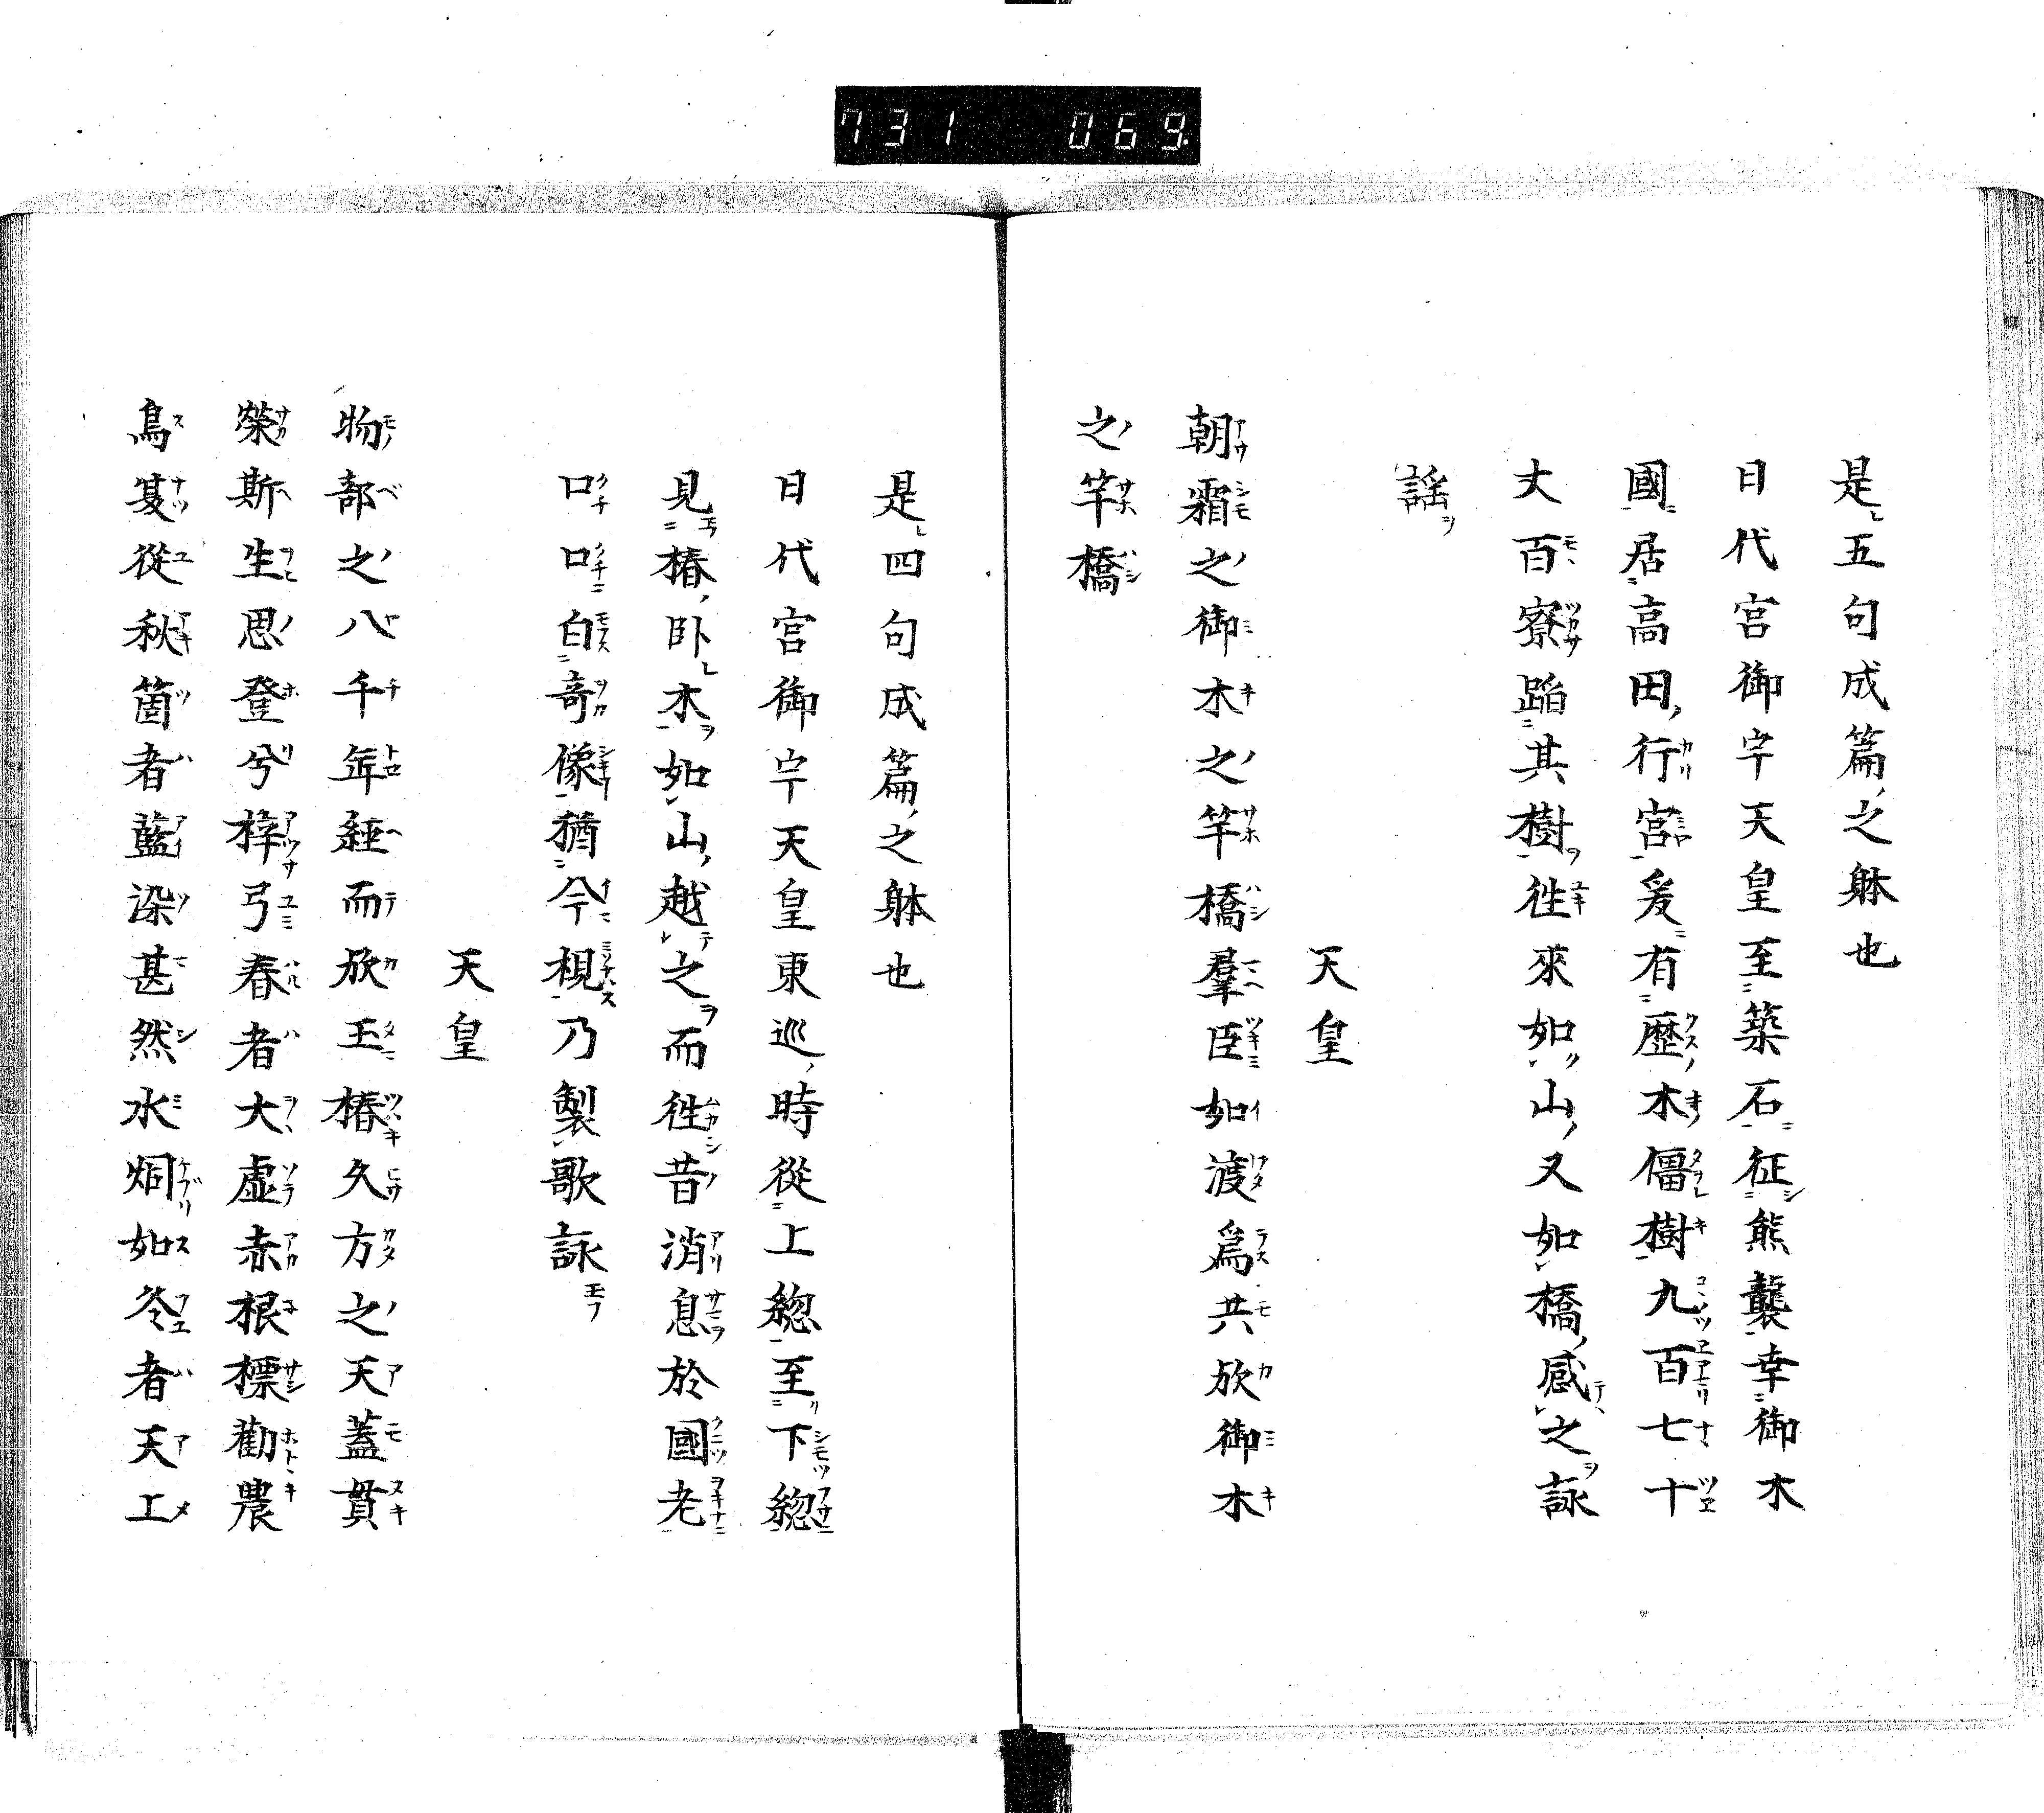 731 069
是五句成篇之躰也
日代宮御宇天皇至築石征熊襲幸御木
國居高田行宮爰有歷木僵樹九百七十
丈百寮蹈其樹徃來如山又如橋感之詠
謡
天皇
朝霜之御木之竿橋羣臣如渡爲共欣御木
之竿橋
是四句成篇之躰也
日代宮御宇天皇東巡時從上緫至下緫
見椿臥木如山越之而徃昔消息於國老
口口白奇像猶今視乃製歌詠
天皇
物部之八千年経而欣王椿久方之天蓋貫
榮斯生思登兮梓弓春者大虛赤根標勸農
鳥夏從秋箇者藍染甚然水烟如冬者天工